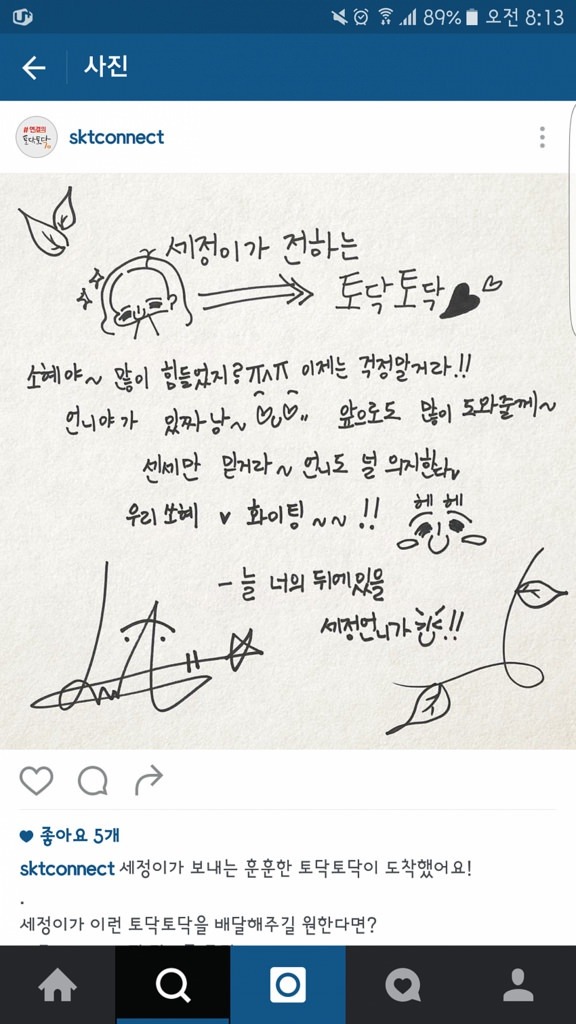 89% 오전 8:13
사진
#연결의
토닥토닥
sktconnect
세정이가 전하는
토닥토닥
소혜야~ 많이 힘들었지? ㅠㅅㅠ 이제는 걱정말거라!!
언니야가 있짜낭~ 앞으로도 많이 도와줄께~
센세만 믿거라~ 언니도 널 의지한다
우리 쏘혜 ♥ 화이팅~~!!
헤헤
- 늘 너의 뒤에있을
세정언니가!!
좋아요 5개
sktconnect 세정이가 보내는 훈훈한 토닥토닥이 도착했어요!
.
세정이가 이런 토닥토닥을 배달해주길 원한다면?